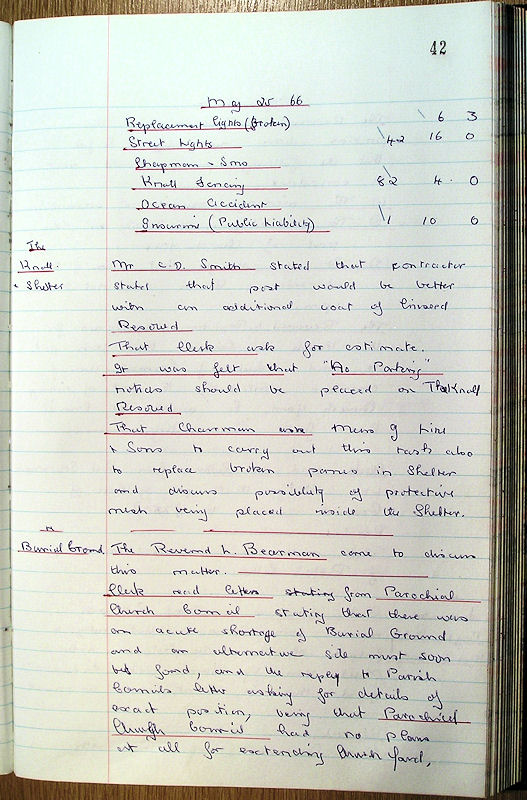 42
May 25 66
Replacement lights (broken) 6 3
Street lights 42 16 0
Chapman & Sons
Knall Fencing 82 4 0
Ocean Accident
Insurance (Public Liability) 1 10 0
The
Knall.
& Shelter
Mr C.D. Smith stated that contractor
stated that post would be better
with an additional coat of linseed
Resolved
That Clerk ask for estimate.
It was felt that "No Parking"
notices should be placed on The Knall
Resolved
That Chairman ask Messrs G
& Sons to carry out this task also
to replace broken panes in Shelter
and discuss possibility of protective
mesh being placed inside the Shelter.
Burial Ground
The Reverend L. Bearman came to discuss
this matter.
Clerk read letters stating from Parochial
Church Council stating that there was
an acute shortage of Burial Ground
and an alternative site must soon
be found, and the reply to Parish
Councils letter asking for details of
exact position, being that Parochial
Church Council had no plans
at all for extending Church Yard,